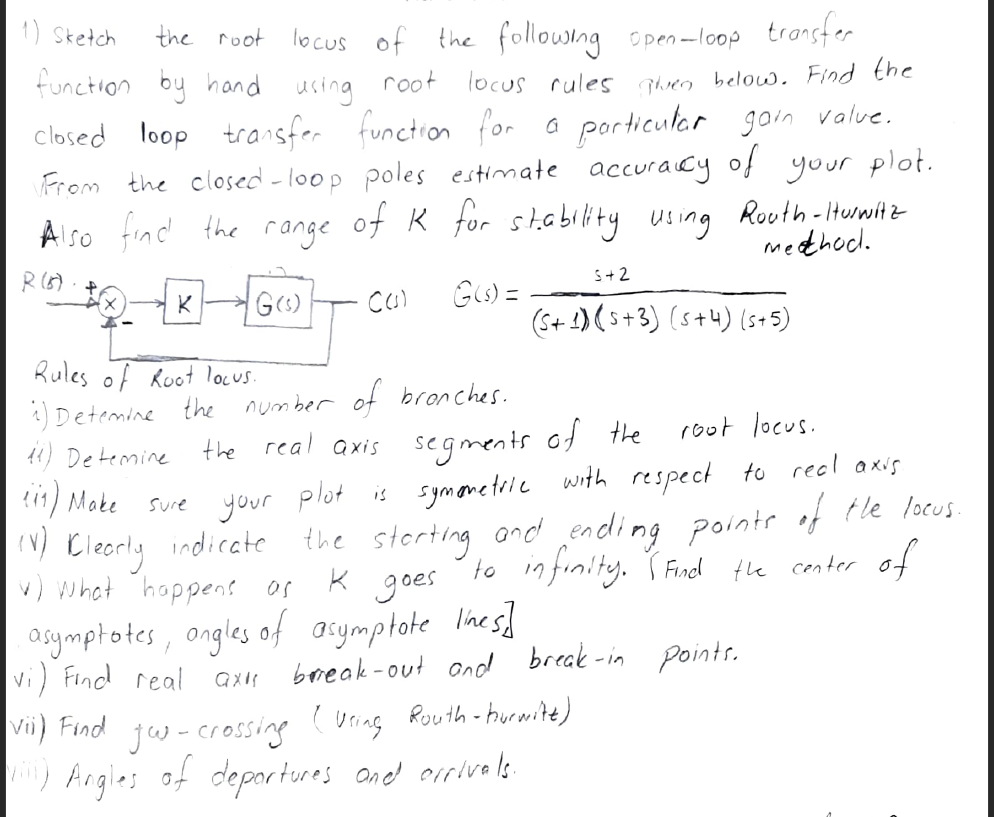 1) Sketch the root locus of the following open-loop transfer
function by hand using root locus rules given below. Find the
closed loop transfer function for a particular gain value.
From the closed-loop poles estimate accuracy of your plot.
Also find the range of K for stability using Routh-Hurwitz
method.
R(s) + x - K G(s) C(s) G(s) = s+2 / (s+1)(s+3)(s+4)(s+5)
Rules of Root locus.
i) Detemine the number of bronches.
ii) Detemine the real axis segments of the root locus.
iii) Make sure your plot is symmetric with respect to real axis
iv) Clearly indicate the starting and ending points of the locus.
v) What happens as K goes to infinity. [Find the center of
asymptotes, angles of asymptote lines]
vi) Find real axis break-out and break-in points.
vii) Find jw-crossing (Using Routh-hurwitz)
viii) Angles of departures and arrivals.